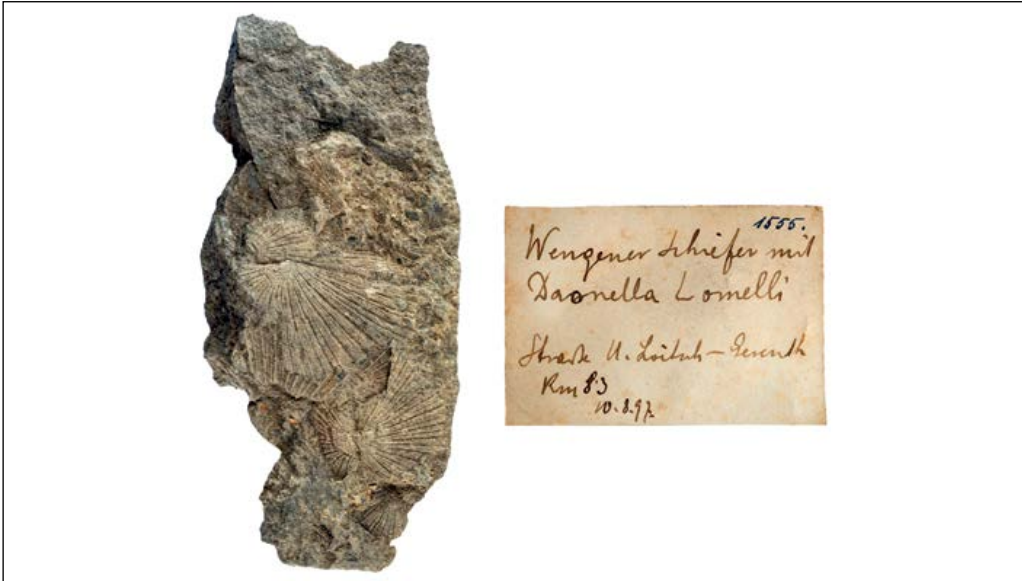 1555.
Wengener Schiefer mit
Daonella Lomelli
Straße U. Loitsch –
Km 8·3
10.8.97.